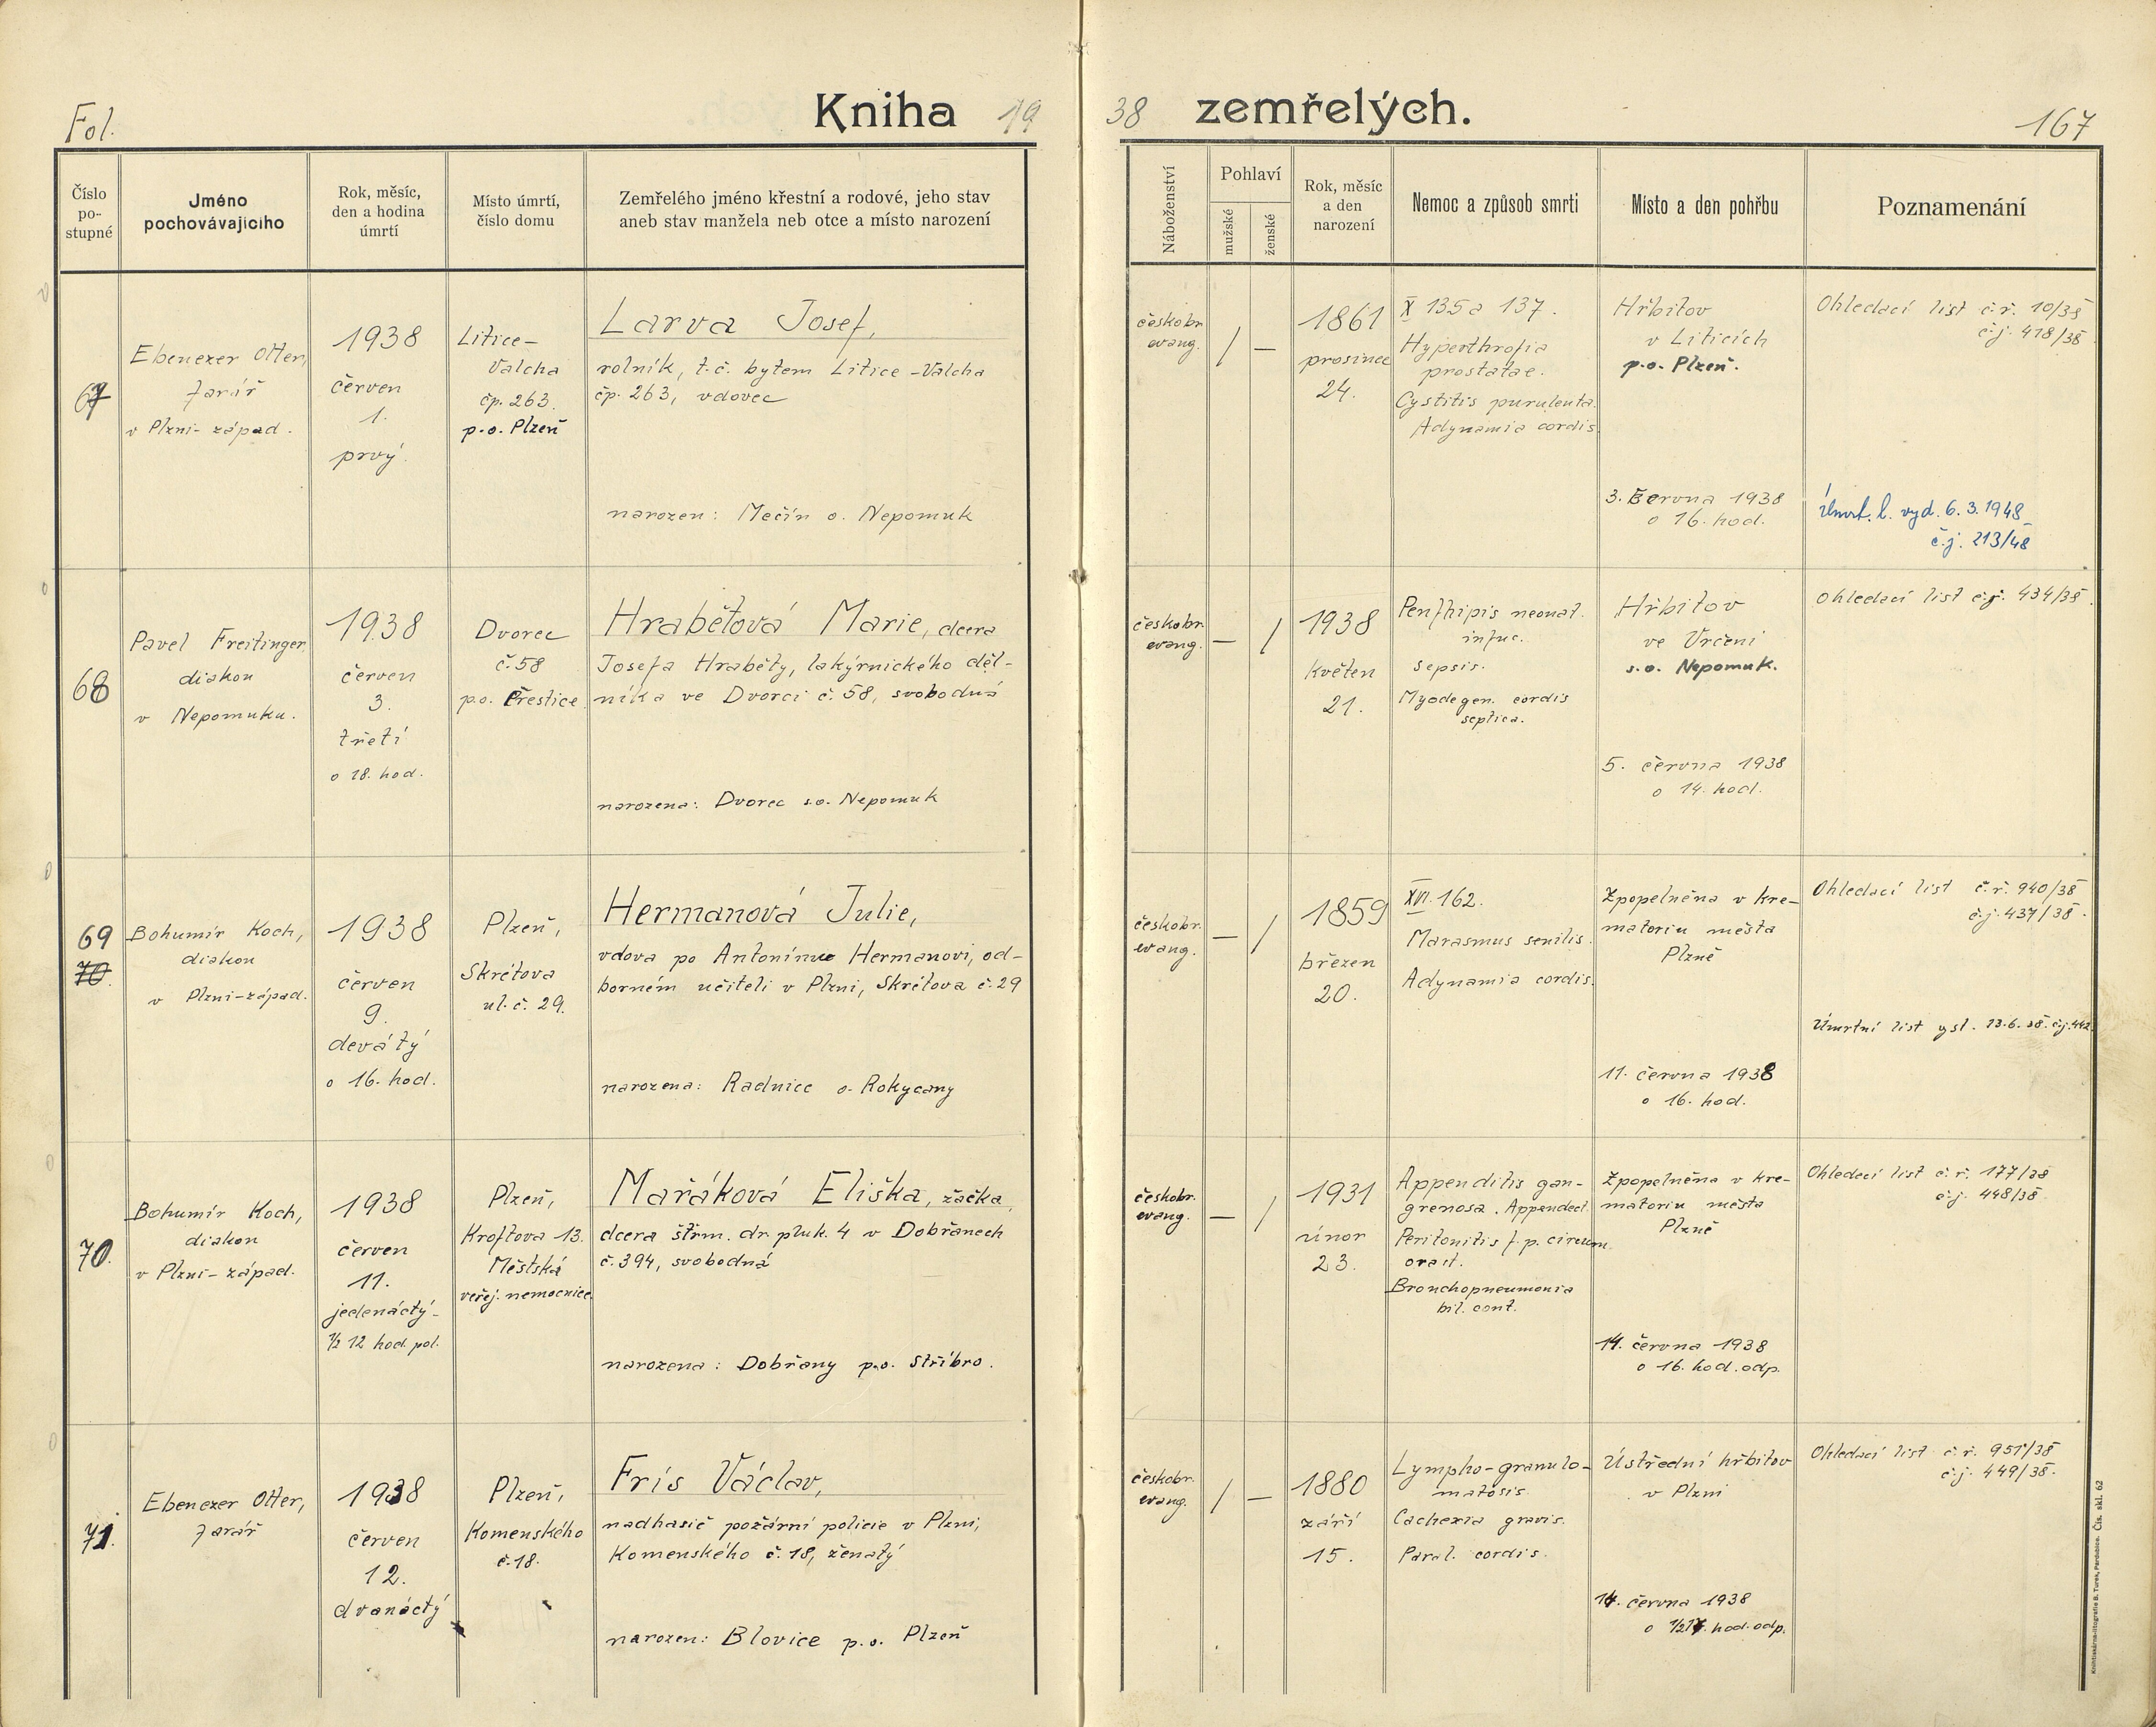 Fol.
Kniha 19
38 zemřelých.
167
Číslo po-stupné
Jméno pochovávajícího
Rok, měsíc, den a hodina úmrtí
Místo úmrtí, číslo domu
Zemřelého jméno křestní a rodové, jeho stav
aneb stav manžela neb otce a místo narození
Náboženství
Pohlaví
mužské
ženské
Rok, měsíc a den narození
Nemoc a způsob smrti
Místo a den pohřbu
Poznamenání
67
Ebenezer Otter,
farář
v Plzni-západ.
1938
červen
1.
prvý.
Litice-
Valcha
čp. 263.
p.o. Plzeň
Larva Josef,
rolník, t.č. bytem Litice-Valcha
čp. 263, vdovec
narozen: Mečín o. Nepomuk
českobr.
evang.
/
—
1861
prosinec
24.
X 135a 137.
Hyperthrofia
prostatae.
Cystitis purulenta.
Adynamia cordis
Hřbitov
v Liticích
p.o. Plzeň.
3. Června 1938
o 16. hod.
Ohledací list č.ř. 10/38
č.j. 418/38
Úmrt. l. vyd. 6.3.1948
č.j. 213/48
68
Pavel Freitinger
diakon
v Nepomuku.
1938
červen
3.
třetí
o 18. hod.
Dvorec
č. 58
p.o. Přestice
Hrabětová Marie, dcera
Josefa Hraběty, lakýrnického děl-
níka ve Dvorci č. 58, svobodná
narozena: Dvorec s.o. Nepomuk
českobr.
evang.
—
/
1938
květen
21.
neonat.
sepsis.
Myodegen. cordis
septica.
Hřbitov
ve Vrčeni
s.o. Nepomuk.
5. června 1938
o 14. hod.
Ohledací list č.j. 434/38.
69
70.
Bohumír Koch,
diakon
v Plzni-západ.
1938
červen
9.
devátý
o 16. hod.
Plzeň,
Skrétova
ul. č. 29.
Hermanová Julie,
vdova po Antonínu Hermanovi, od-
borném učiteli v Plzni, Skrétova č. 29
narozena: Radnice o. Rokycany
českobr.
evang.
—
/
1859
březen
20.
XVI. 162.
Marasmus senilis.
Adynamia cordis.
Zpopelněna v kre-
matoriu města
Plzně
11. června 1938
o 16. hod.
Ohledací list č.ř. 940/38
č.j. 437/38.
Úmrtní list 13.6.38. č.j. 442.
70.
Bohumír Koch,
diakon
v Plzni-západ.
1938
červen
11.
jedenáctý-
½ 12 hod. pol.
Plzeň,
Kroftova 13.
Městská
veřej. nemocnice
Mařáková Eliška, žačka,
dcera štrm. dr. pluk. 4 v Dobřanech
č. 394, svobodná
narozena: Dobřany p.o. Stříbro.
českobr.
evang.
—
/
1931
únor
23.
Appenditis gan-
grenosa. Appendect.
Peritonitis f. p. circum
Bronchopneumonia
bil. conf.
Zpopelněna v kre-
matoriu města
Plzně
14. června 1938
o 16. hod. odp.
Ohledací list č.ř. 177/38
č.j. 448/38.
71.
Ebenezer Otter,
farář
1938
červen
12.
dvanáctý
Plzeň,
Komenského
č. 18.
Frís Václav,
nadhasič požární policie v Plzni,
Komenského č. 18, ženatý
narozen: Blovice p.o. Plzeň
českobr.
evang.
/
—
1880
září
15.
Lympho-granulo-
matósis
Cachexia gravis.
Paral. cordis.
Ústřední hřbitov
v Plzni
14. června 1938
o ½17. hod. odp.
Ohledací list č.ř. 951/38
č.j. 449/38.
Knihtiskárna-litografie B. Turek, Pardubice. Čís. skl. 62